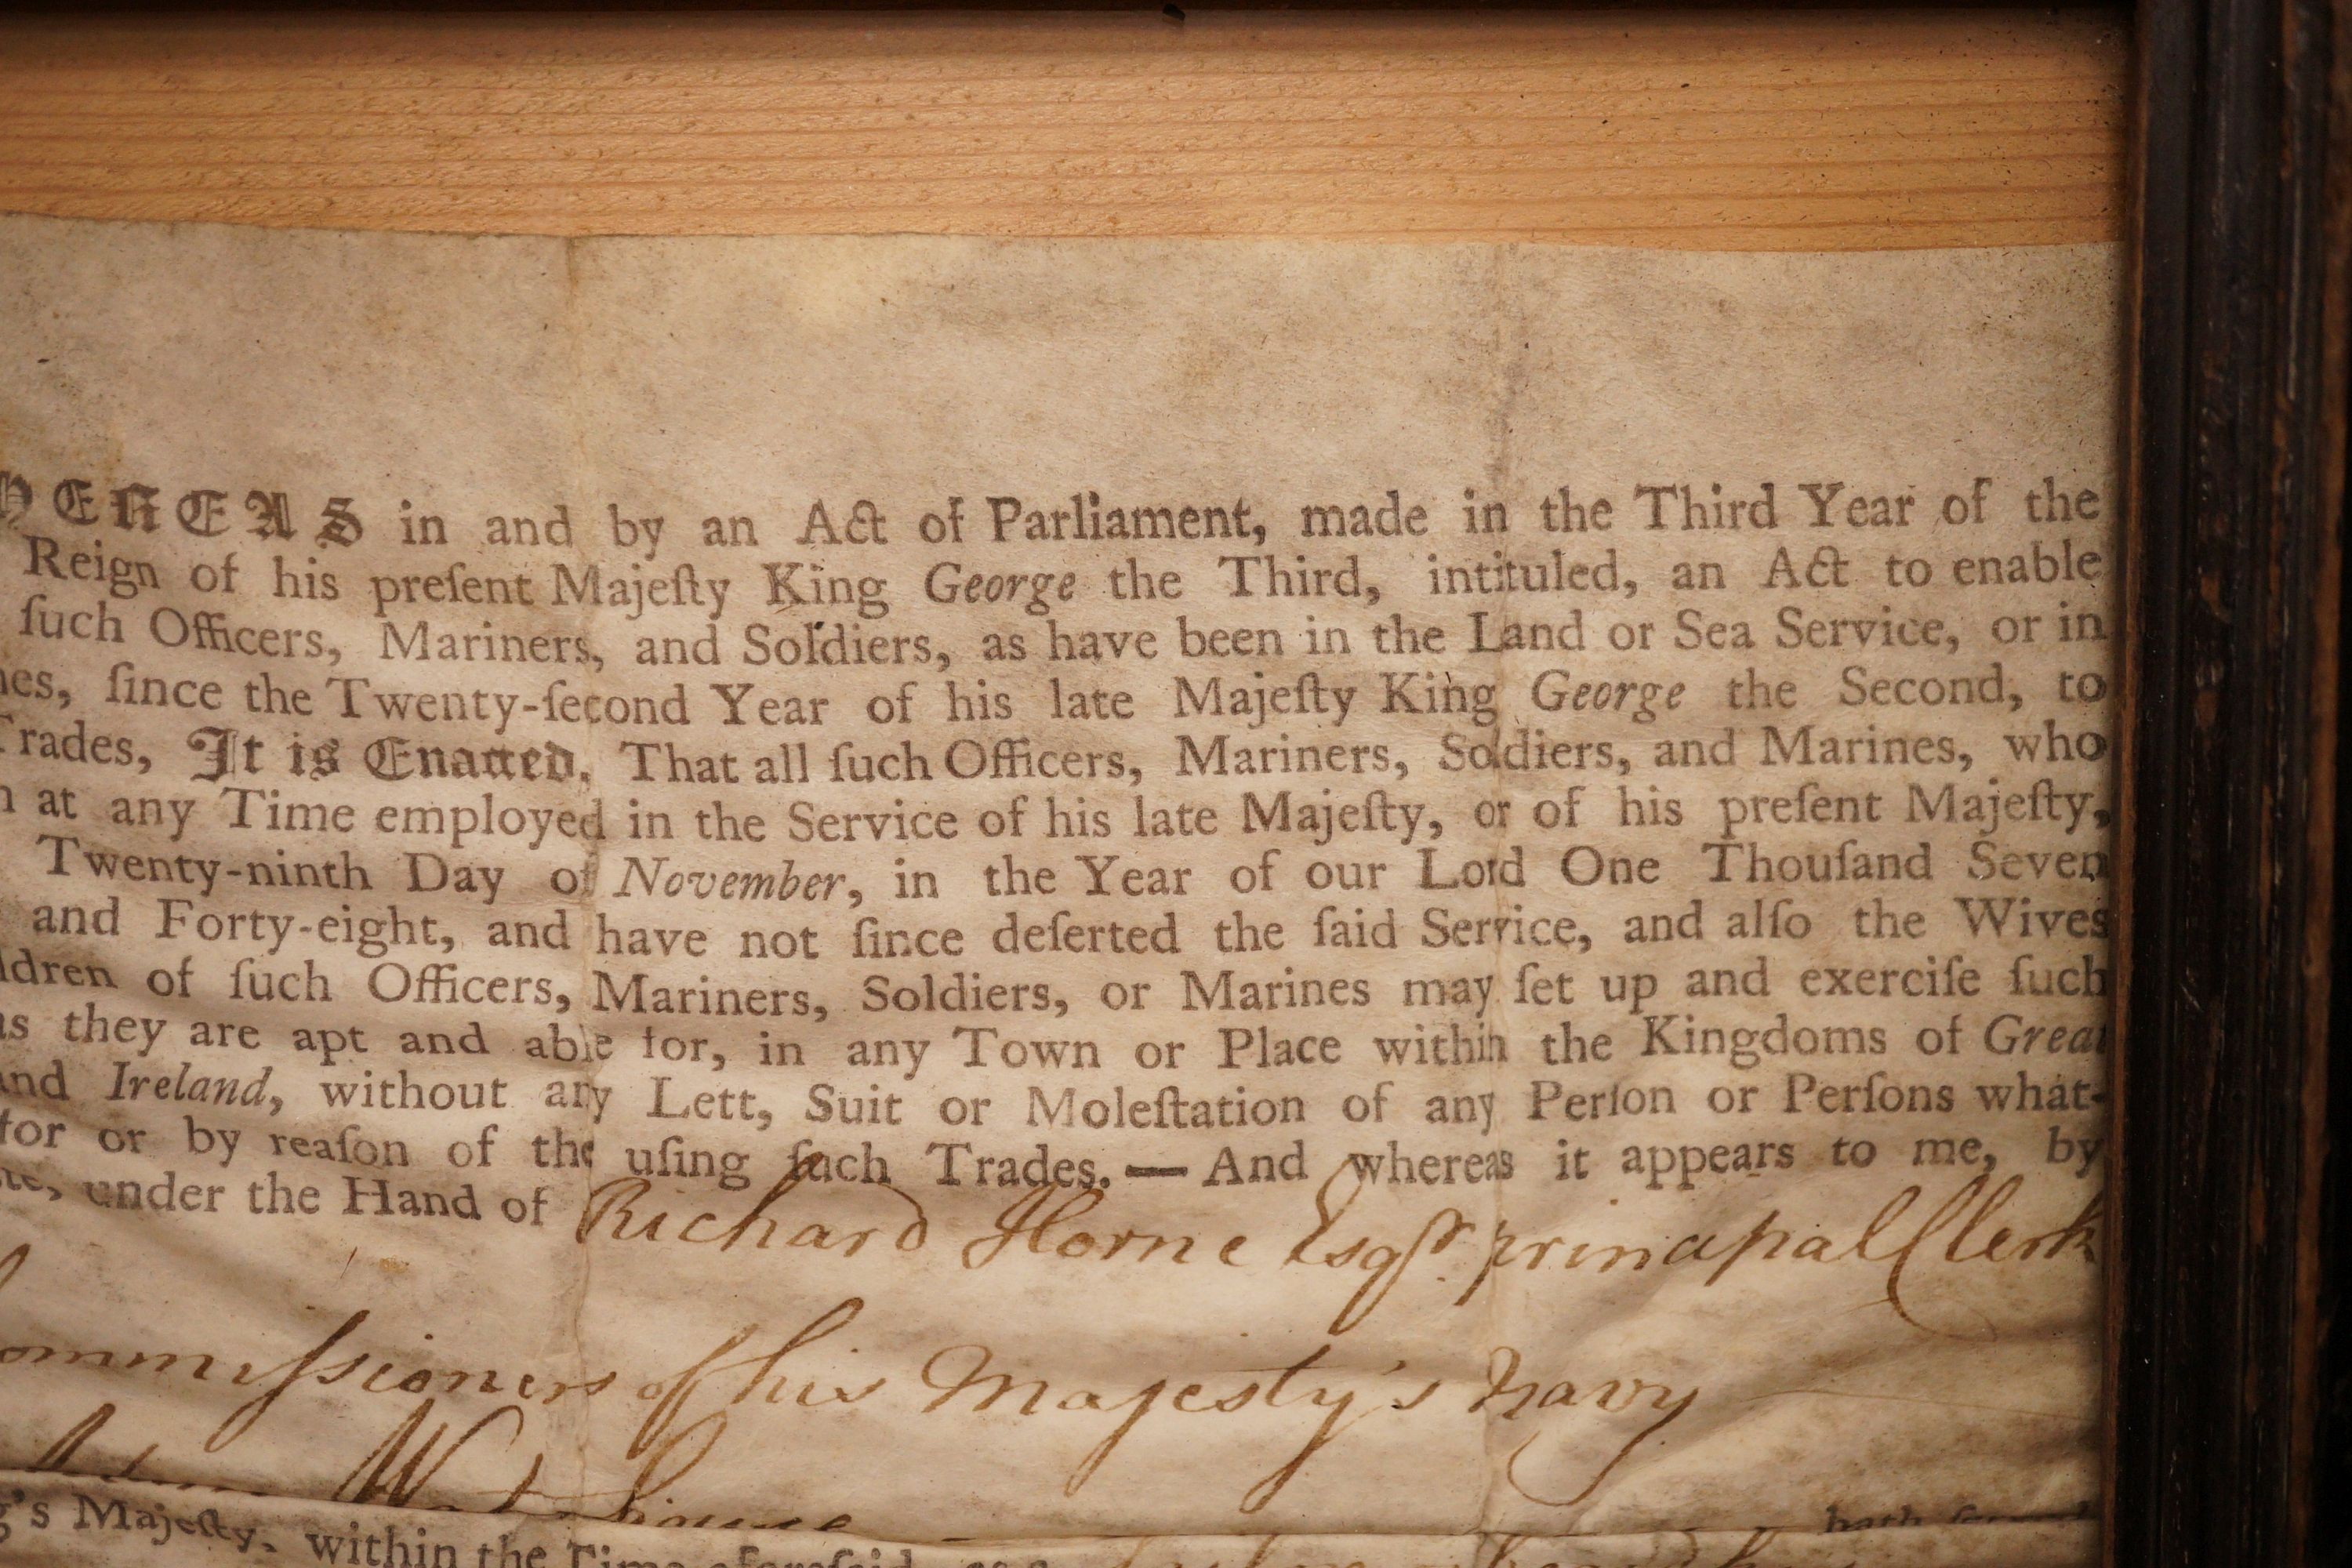 HEREAS in and by an Act of Parliament, made in the Third Year of the
Reign of his preſent Majeſty King George the Third, intituled, an Act to enable
ſuch Officers, Mariners, and Soldiers, as have been in the Land or Sea Service, or in
nes, ſince the Twenty-ſecond Year of his late Majeſty King George the Second, to
Trades, It is Enacted, That all ſuch Officers, Mariners, Soldiers, and Marines, who
n at any Time employed in the Service of his late Majeſty, or of his preſent Majeſty,
Twenty-ninth Day of November, in the Year of our Lord One Thouſand Seven
and Forty-eight, and have not ſince deſerted the ſaid Service, and alſo the Wives
ldren of ſuch Officers, Mariners, Soldiers, or Marines may ſet up and exerciſe ſuch
as they are apt and able for, in any Town or Place within the Kingdoms of Great
and Ireland, without any Lett, Suit or Moleſtation of any Perſon or Perſons what-
for or by reaſon of the uſing ſuch Trades. — And whereas it appears to me, by
te, under the Hand of Richard Horne Esqr. principal Clerk
ommiſsioners of his Majesty's Navy
g's Majeſty, within the Time aforeſaid, as a